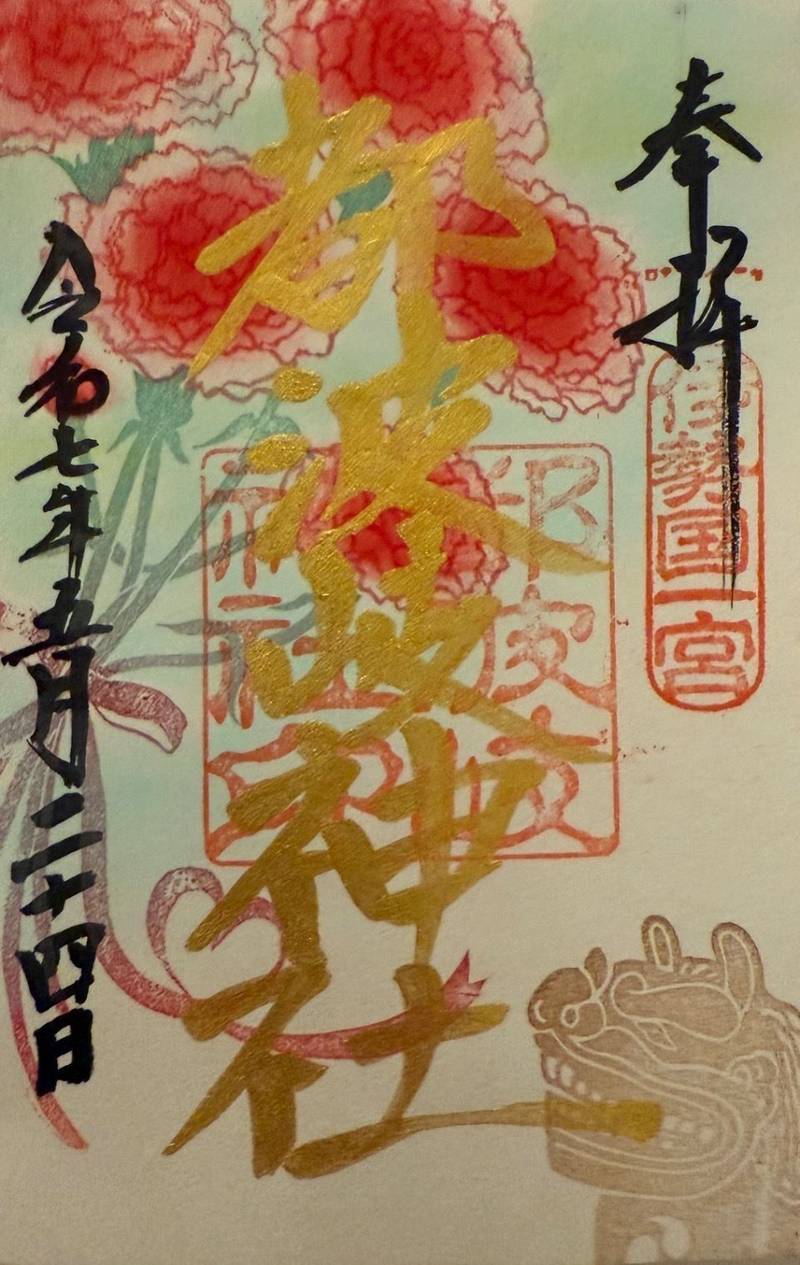 奉拝
伊勢国一宮
都波岐神社
都波岐
神社印
令和七年五月二十四日